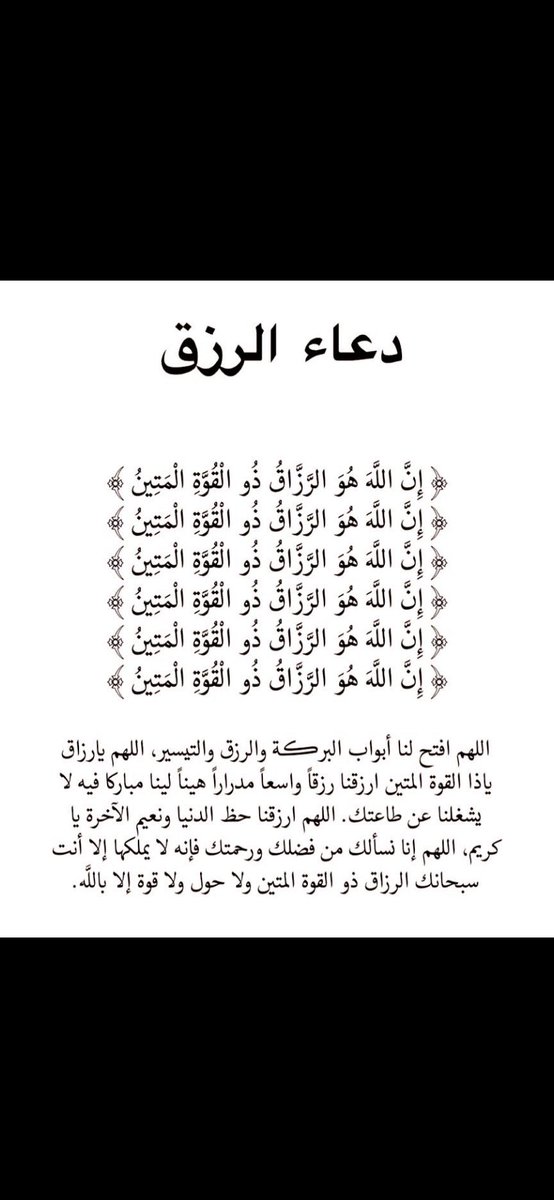 دعاء الرزق
﴿ إِنَّ اللَّهَ هُوَ الرَّزَّاقُ ذُو الْقُوَّةِ الْمَتِينُ ﴾
﴿ إِنَّ اللَّهَ هُوَ الرَّزَّاقُ ذُو الْقُوَّةِ الْمَتِينُ ﴾
﴿ إِنَّ اللَّهَ هُوَ الرَّزَّاقُ ذُو الْقُوَّةِ الْمَتِينُ ﴾
﴿ إِنَّ اللَّهَ هُوَ الرَّزَّاقُ ذُو الْقُوَّةِ الْمَتِينُ ﴾
﴿ إِنَّ اللَّهَ هُوَ الرَّزَّاقُ ذُو الْقُوَّةِ الْمَتِينُ ﴾
﴿ إِنَّ اللَّهَ هُوَ الرَّزَّاقُ ذُو الْقُوَّةِ الْمَتِينُ ﴾
اللهم افتح لنا أبواب البركة والرزق والتيسير، اللهم يارزاق
ياذا القوة المتين ارزقنا رزقاً واسعاً مدراراً هيناً لينا مباركا فيه لا
يشغلنا عن طاعتك. اللهم ارزقنا حظ الدنيا ونعيم الآخرة يا
كريم، اللهم إنا نسألك من فضلك ورحمتك فإنه لا يملكها إلا أنت
سبحانك الرزاق ذو القوة المتين ولا حول ولا قوة إلا باللَّه.